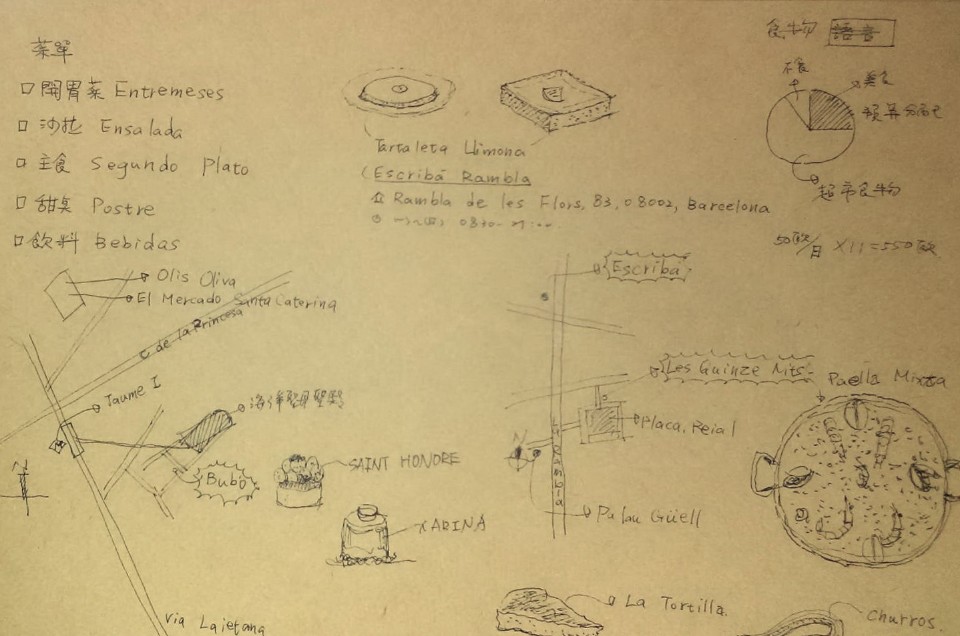 菜單
開胃菜 Entremeses
沙拉 Ensalada
主食 Segundo Plato
甜臭 Postre
飲料 Bebidas
Tartaleta Llimona
(Escribá Rambla
Rambla de les Flors, 83, 08002, Barcelona
食物 語言
不食
美食
預算分配
超市食物
50歐/日 X11=550歐
Olis Oliva
El Mercado Santa Caterina
C de la Princesa
Jaume I
海洋聖母聖殿
Bubó
N
SAINT HONORE
XARINA
Via Laietana
Escribà
Les Quinze Nits
Placa Reial
N
LA RAMBLA
Palau Güell
Paella Mixta
La Tortilla.
Churros.